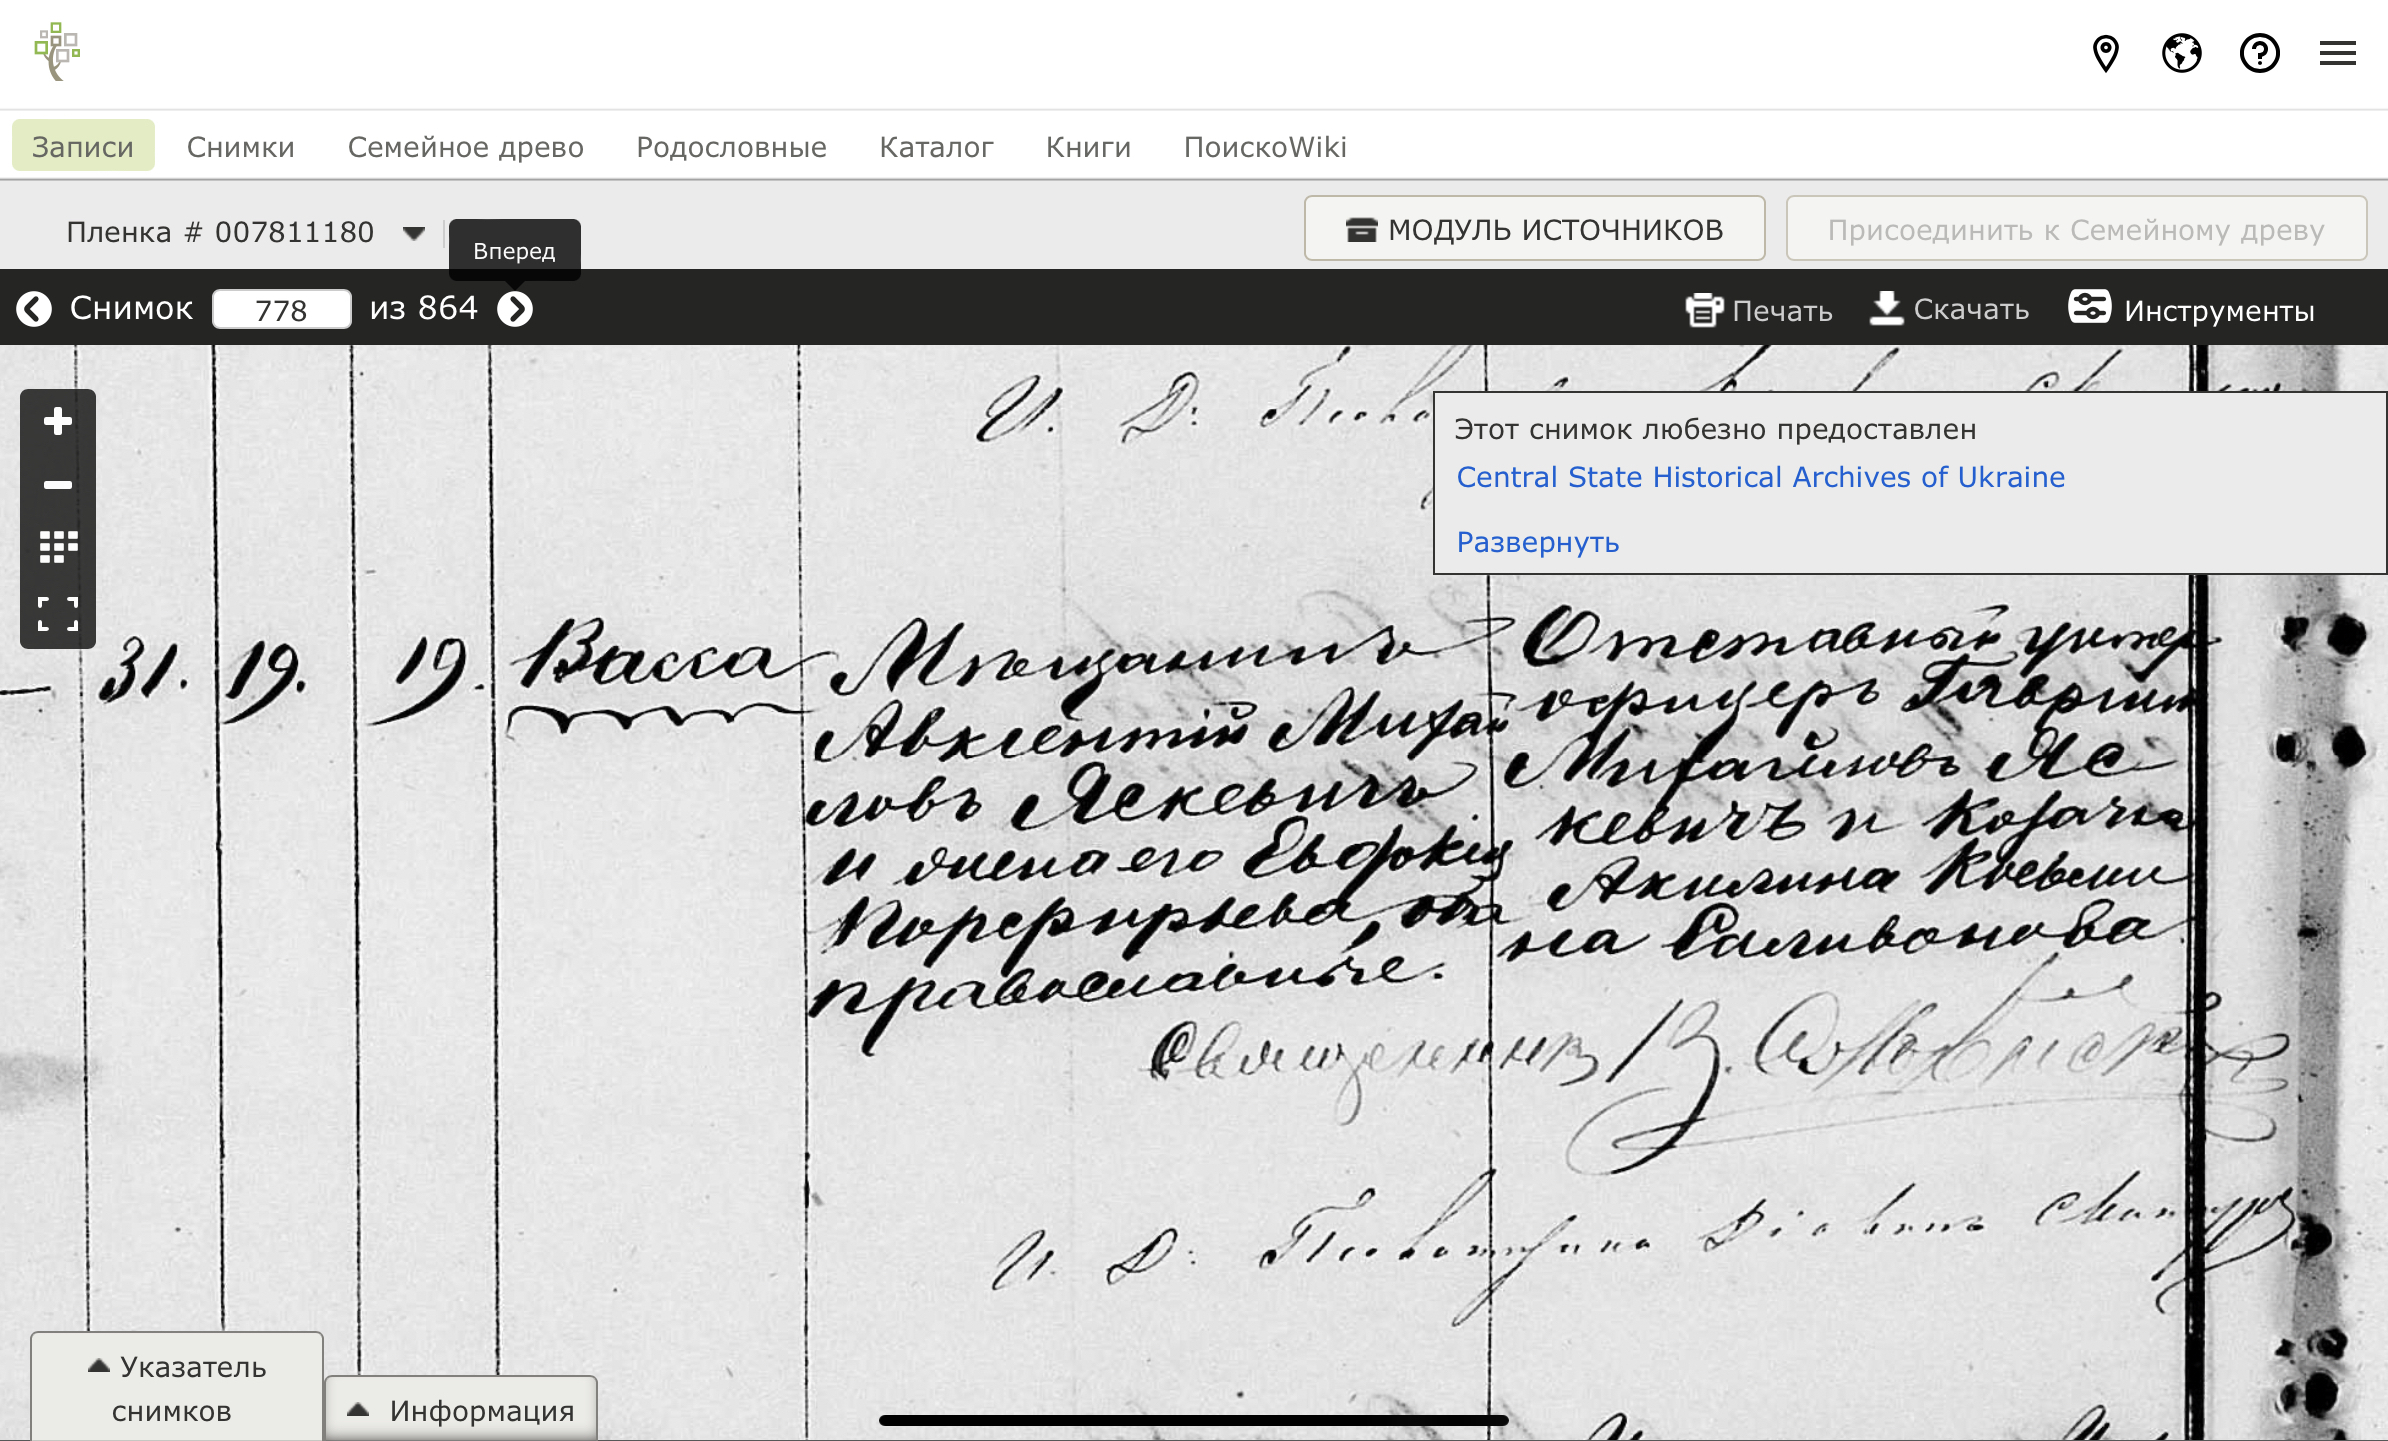 Записи Снимки Семейное древо Родословные Каталог Книги ПоискоWiki
Пленка # 007811180
Вперед
МОДУЛЬ ИСТОЧНИКОВ
Присоединить к Семейному древу
Снимок 778 из 864
Печать Скачать Инструменты
И. Д:
Этот снимок любезно предоставлен
Central State Historical Archives of Ukraine
Развернуть
31. 19. 19. Васса
Мѣщанинъ
Авксентій Михай
ловъ Яскевичъ
и жена его
Порфирьева, оба
православные.
Отставный унтер
офицеръ Гавріил
Михайловъ Яс
кевичъ и козачка
Акилина
на Саливонова
Священникъ В.
И. Д: Псаломщика Діаконъ
Указатель
снимков
Информация